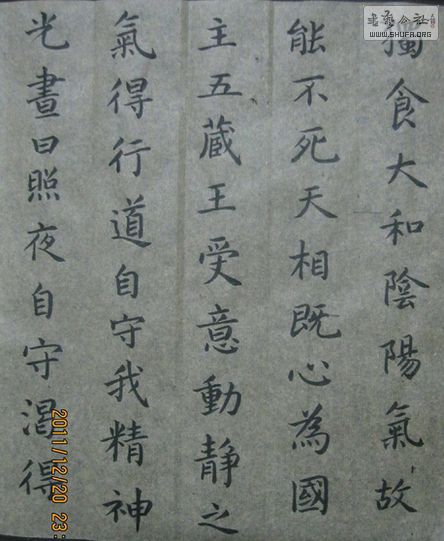 獨食大和陰陽氣故
能不死天相既心為國
主五藏王受意動靜之
氣得行道自守我精神
光晝日照夜自守渴得
書藝公社
WWW.SHUFA.ORG
2011/12/20 23: